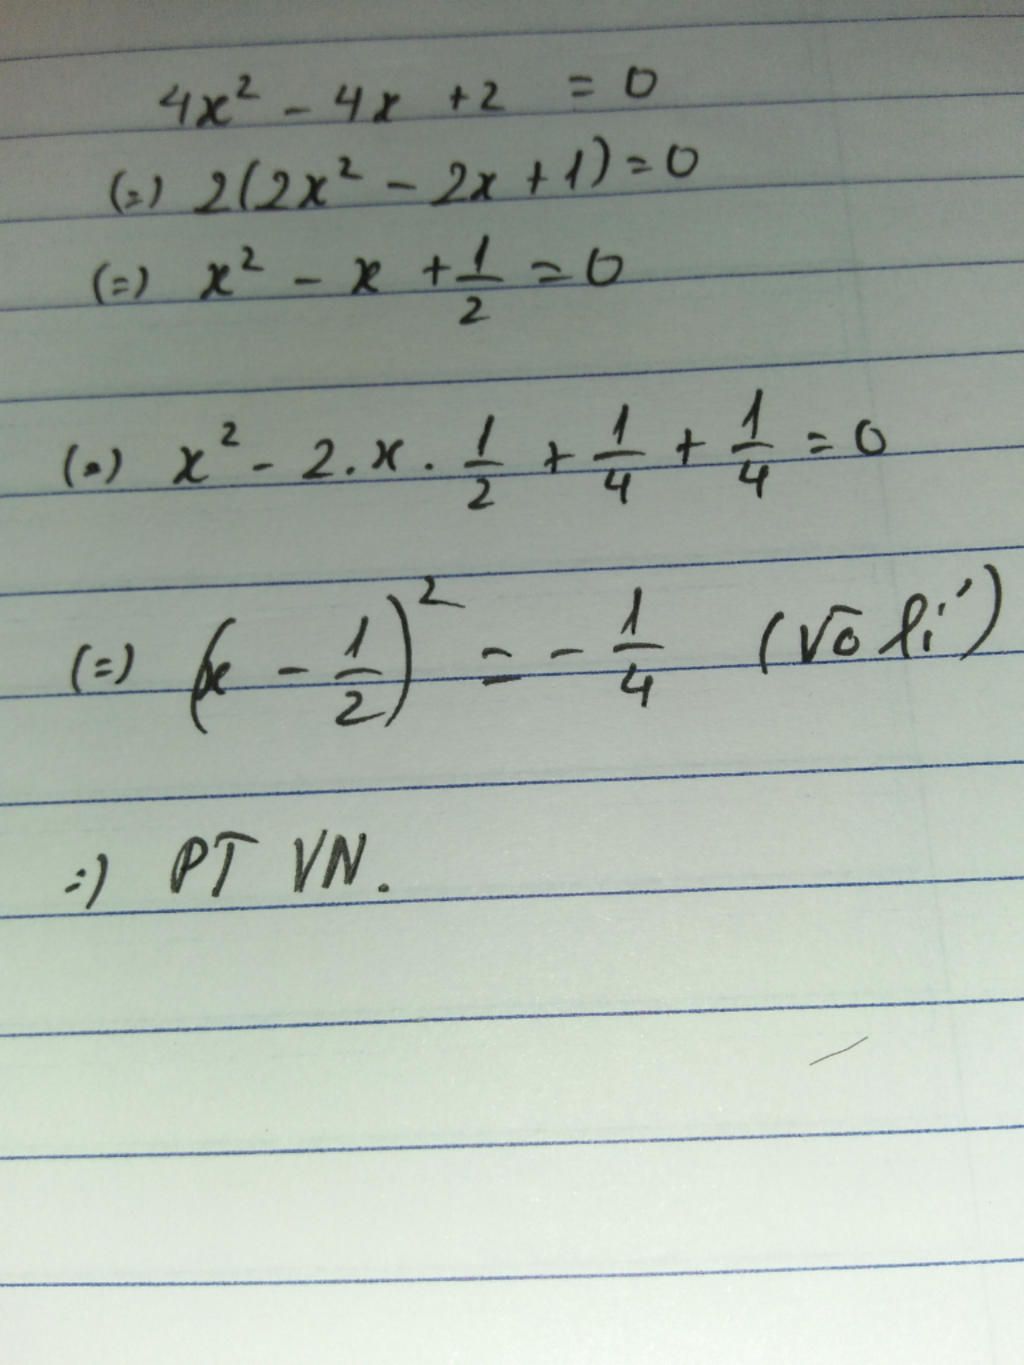 4x² - 4x + 2 = 0
(=) 2(2x² - 2x + 1) = 0
(=) x² - x + 1/2 = 0
(=) x² - 2.x.1/2 + 1/4 + 1/4 = 0
(=) (x - 1/2)² = - 1/4 (vô lí)
=) PT VN.